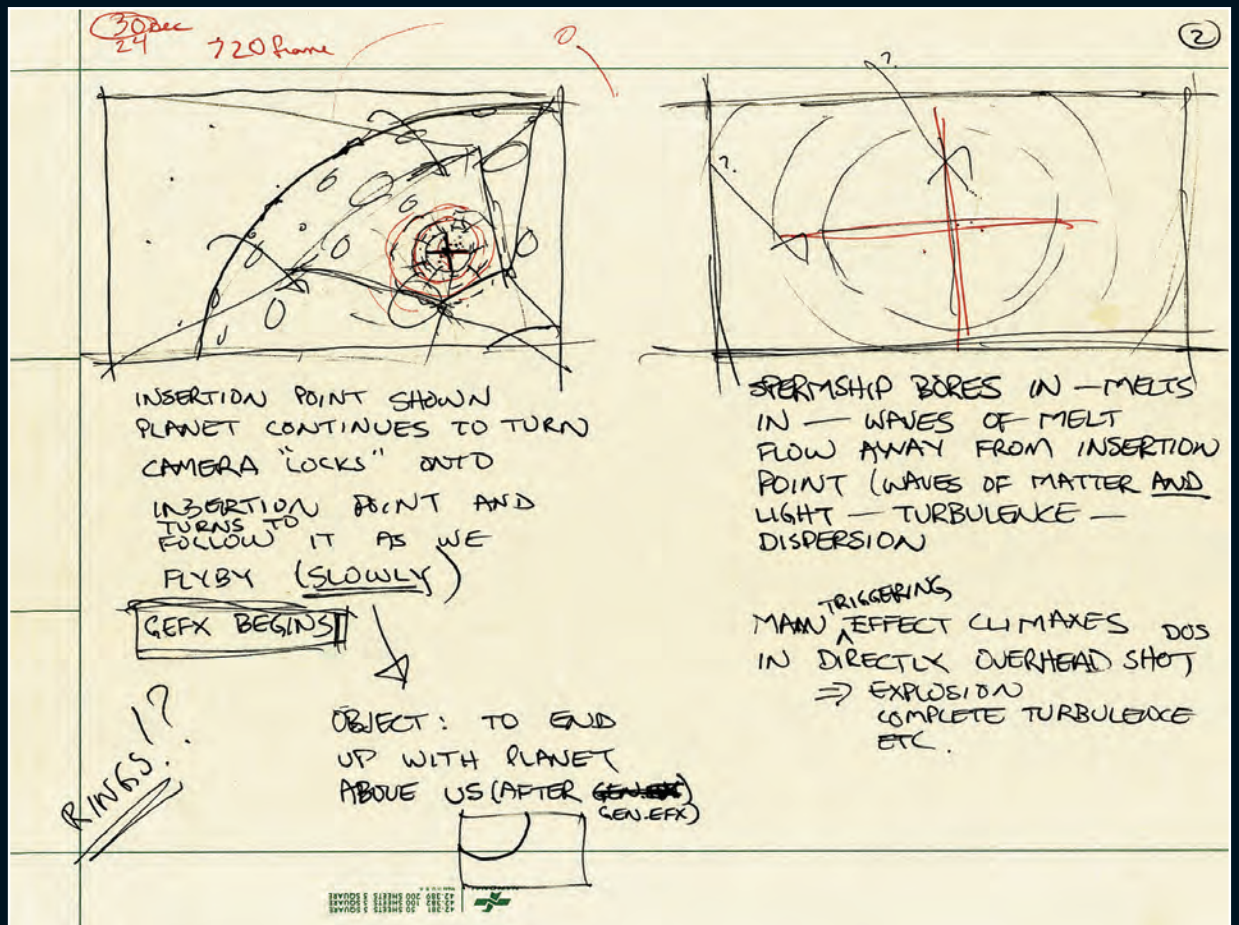 30 Dec
24
720 frame
2
?
?
INSERTION POINT SHOWN
PLANET CONTINUES TO TURN
CAMERA "LOCKS" ONTO
INSERTION POINT AND
TURNS TO
FOLLOW IT AS WE
FLYBY (SLOWLY)
GEFX BEGINS
RINGS!?
OBJECT: TO END
UP WITH PLANET
ABOVE US (AFTER
GEN.EFX)
SPERMSHIP BORES IN — MELTS
IN — WAVES OF MELT
FLOW AWAY FROM INSERTION
POINT (WAVES OF MATTER AND
LIGHT — TURBULENCE —
DISPERSION
TRIGGERING
MAIN EFFECT CLIMAXES DOS
IN DIRECTLY OVERHEAD SHOT
⇒ EXPLOSION
COMPLETE TURBULENCE
ETC.
42-381 50 SHEETS 5 SQUARE
42-382 100 SHEETS 5 SQUARE
42-389 200 SHEETS 5 SQUARE